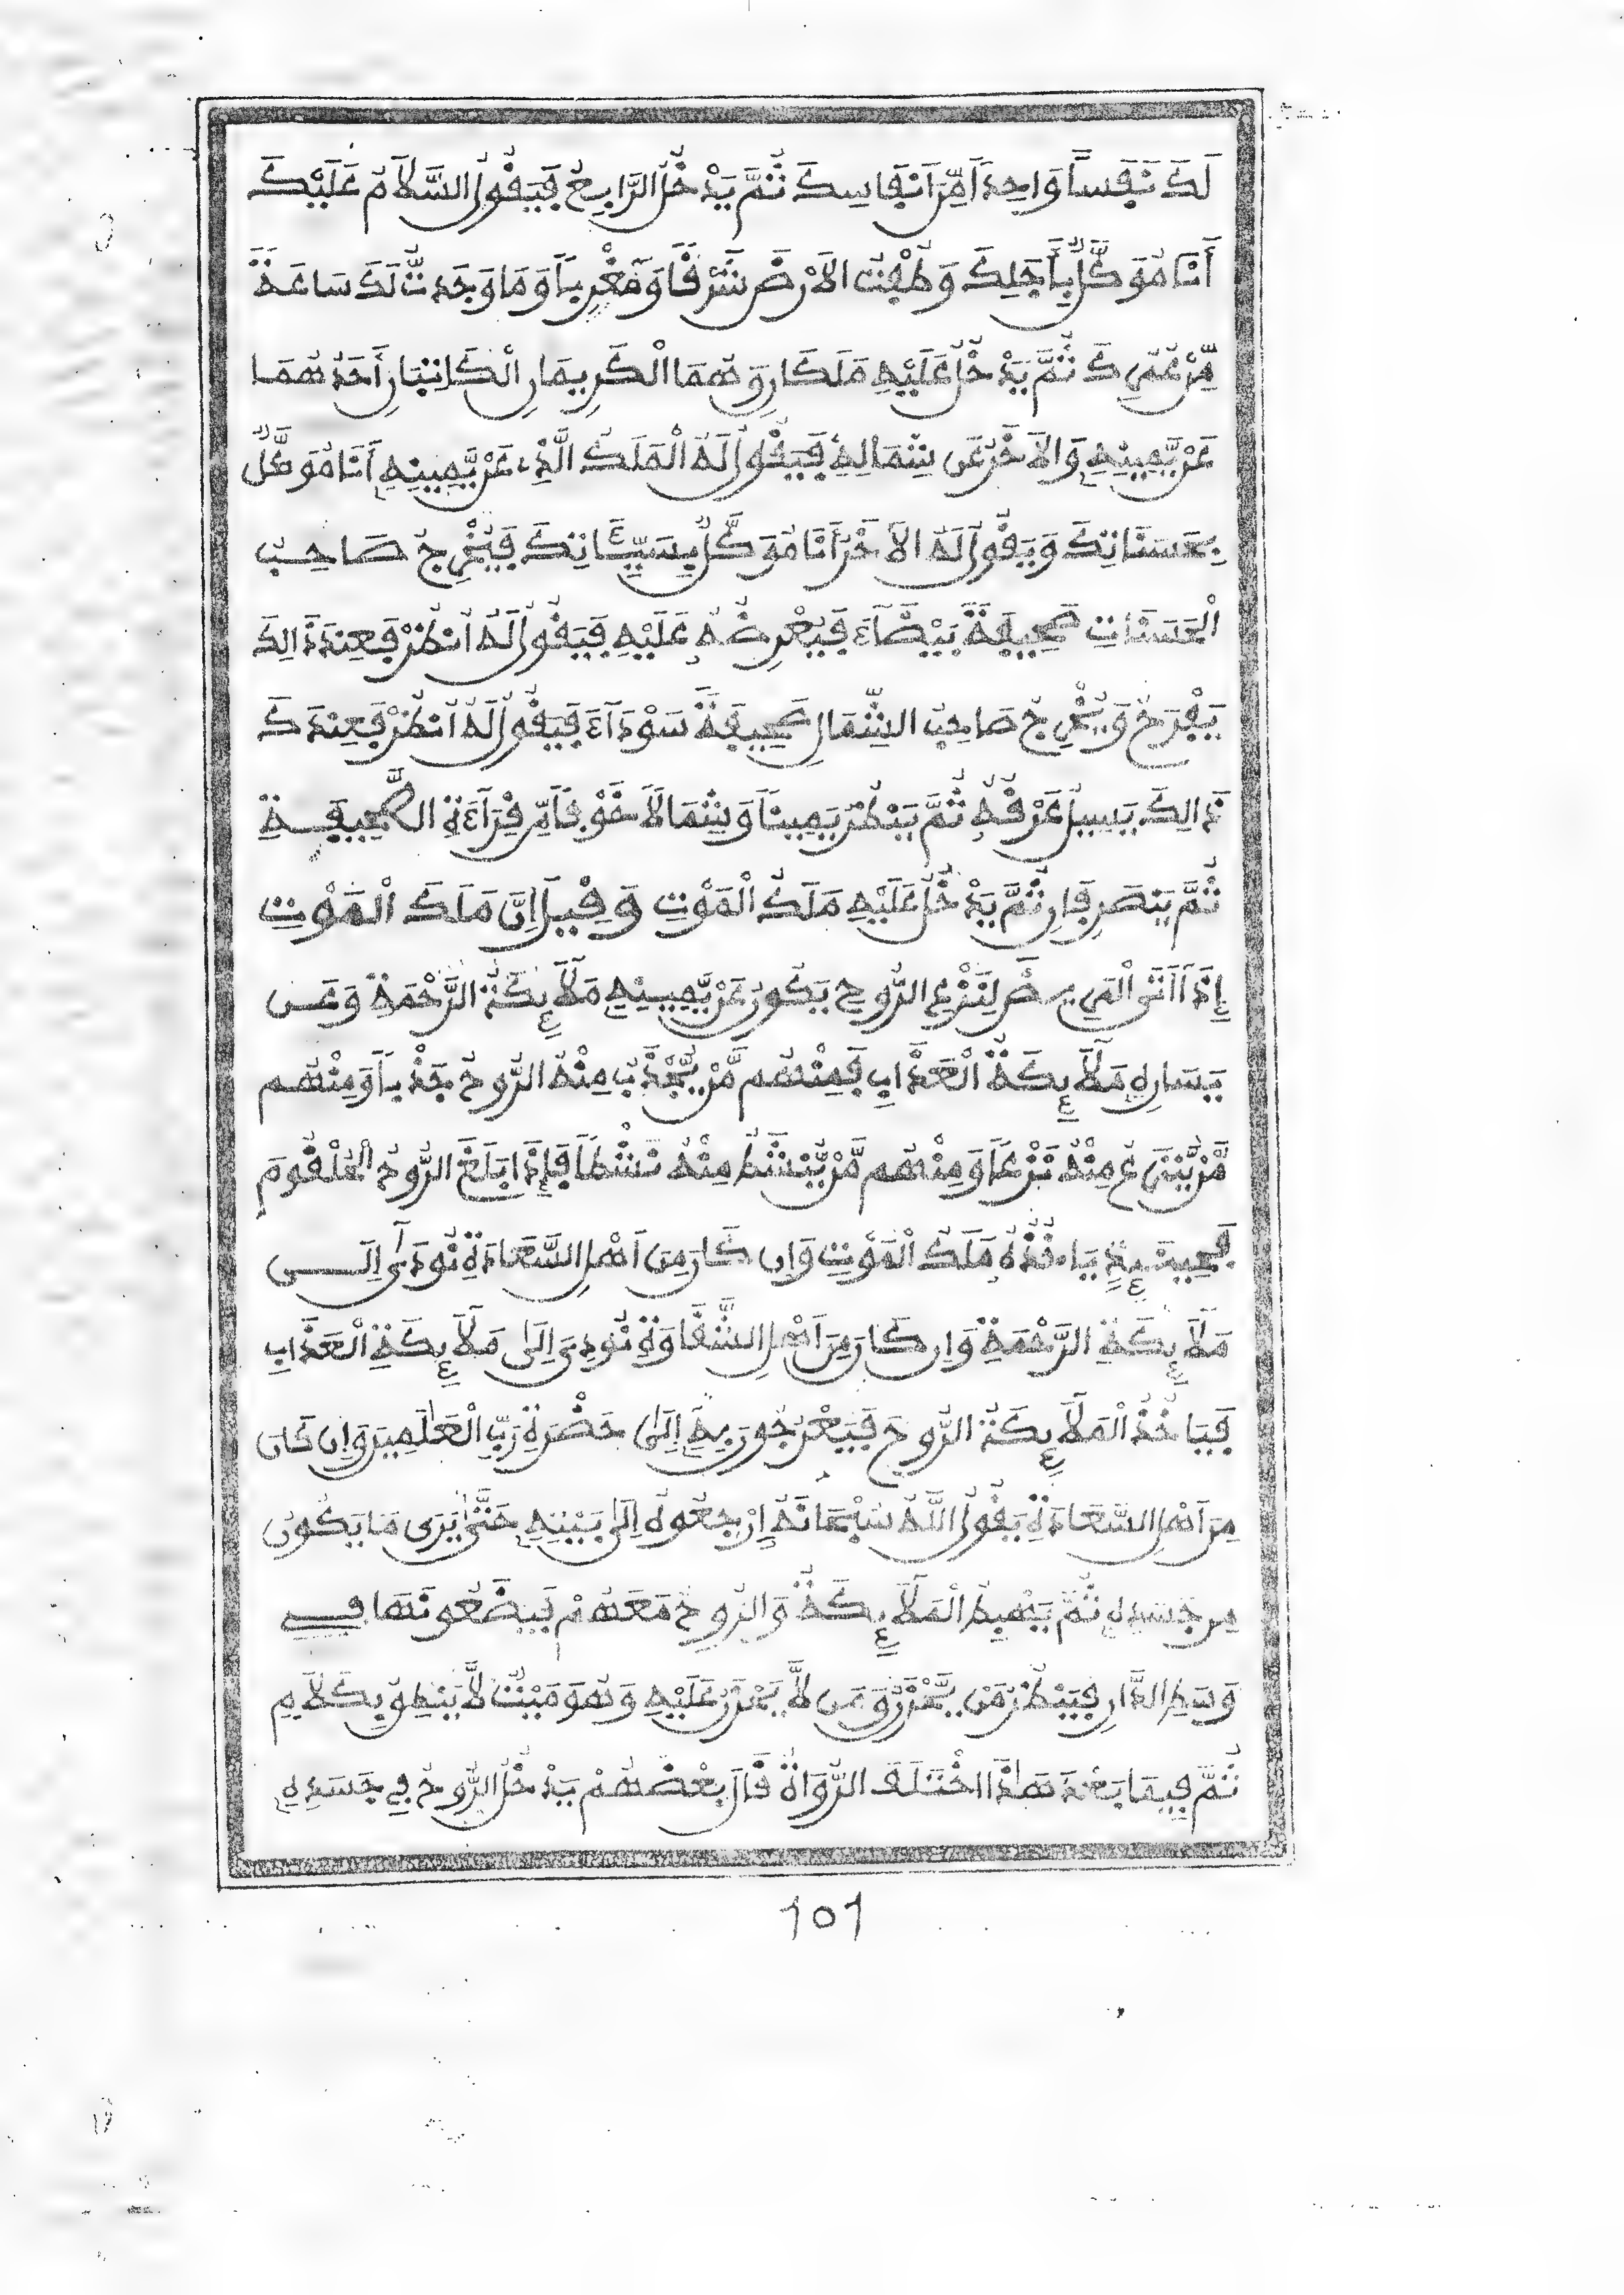 لَكَ نَفَساً وَاحِداً مِّنَ اَنْفَاسِكَ ثُمَّ يَدْخُلُ الرَّابِعُ فَيَقُولُ السَّلَامُ عَلَيْكَ
أَنَا مُوَكَّلٌ بِأَجَلِكَ وَطُفْتُ الاَرْضَ شَرْقاً وَمَغْرِباً وَمَا وَجَدتُّ لَكَ سَاعَةً
مِّنْ عُمْرِكَ ثُمَّ يَدْخُلُ عَلَيْهِ مَلَكَانِ وَهُمَا الْكَرِيمَانِ الْكَاتِبَانِ أَحَدُهُمَا
عَنْ يَّمِينِهِ وَالاَخَرُ عَنْ شِمَالِهِ فَيَقُولُ لَهُ الْمَلَكُ الَّذِي عَنْ يَّمِينِهِ أَنَا مُوَكَّلٌ
بِحَسَنَاتِكَ وَيَقُولُ لَهُ الاَخَرُ أَنَا مُوَكَّلٌ بِسَيِّئَاتِكَ فَيُخْرِجُ صَاحِبُ
الْحَسَنَاتِ صَحِيفَةً بَيْضَآءَ فَيُعْرِضُهُ عَلَيْهِ فَيَقُولُ لَهُ اُنْظُرْ فَعِنْدَ ذَالِكَ
يَفْرَحُ وَيُخْرِجُ صَاحِبُ الشِّمَالِ صَحِيفَةً سَوْدَآءَ فَيَقُولُ لَهُ اُنْظُرْ فَعِنْدَ
ذَالِكَ يَسِيلُ عَرْقُهُ ثُمَّ يَنْظُرُ يَمِيناً وَشِمَالاً خَوْفاً مِّنْ قِرَآءَةِ الصَّحِيفَةِ
ثُمَّ يَنْصَرِفَانِ ثُمَّ يَدْخُلُ عَلَيْهِ مَلَكُ الْمَوْتِ وَقِيلَ اِنَّ مَلَكَ الْمَوْتِ
إِذَا اَتَى الْمَرِيضَ لِنَزْعِ الرُّوحِ يَكُونُ عَنْ يَّمِينِهِ مَلَآئِكَةُ الرَّحْمَةِ وَعَنْ
يَسَارِهِ مَلَآئِكَةُ الْعَذَابِ فَمِنْهُم مَّنْ يَّجْذَبُ مِنْهُ الرُّوحُ جَذْباً وَمِنْهُم
مَّنْ يَّنْزَعُ مِنْهُ نَزْعاً وَمِنْهُم مَّنْ يَّنْشَطُ مِنْهُ نَشْطاً فَإِذَا بَلَغَ الرُّوحُ الْحُلْقُومَ
فَحِينَئِذٍ يَاخُذُهُ مَلَكُ الْمَوْتِ وَاِن كَانَ مِنَ اَهْلِ السَّعَادَةِ نُودِىَ اِلَى
مَلَآئِكَةِ الرَّحْمَةِ وَاِن كَانَ مِنَ اَهْلِ الشَّقَاوَةِ نُودِىَ اِلَى مَلَآئِكَةِ الْعَذَابِ
فَيَاخُذُ الْمَلَآئِكَةُ الرُّوحَ فَيَعْرُجُونَ بِهِ إِلَى حَضْرَةِ رَبِّ الْعَالَمِينَ وَاِن كَانَ
مِنَ اَهْلِ السَّعَادَةِ يَقُولُ اللَّهُ سُبْحَانَهُ اِرْجِعُوهُ اِلَى بَيْتِهِ حَتَّى يَرَى مَا يَكُونُ
مِن جَسَدِهِ ثُمَّ يَهْبِطُ الْمَلَآئِكَةُ وَالرُّوحُ مَعَهُمْ فَيَضَعُونَهَا فِي
وَسَطِ الدَّارِ فَيَنْظُرُ مَنْ يَّحْزَنُ وَمَن لَّا يَحْزَنُ عَلَيْهِ وَهُوَ مَيِّتٌ لَّا يَنْطِقُ بِكَلَامٍ
ثُمَّ فِيمَا بَعْدَ هَٰذَا اخْتَلَفَ الرُّوَاةُ قَالَ بَعْضُهُمْ يَدْخُلُ الرُّوحُ فِي جَسَدِهِ
101